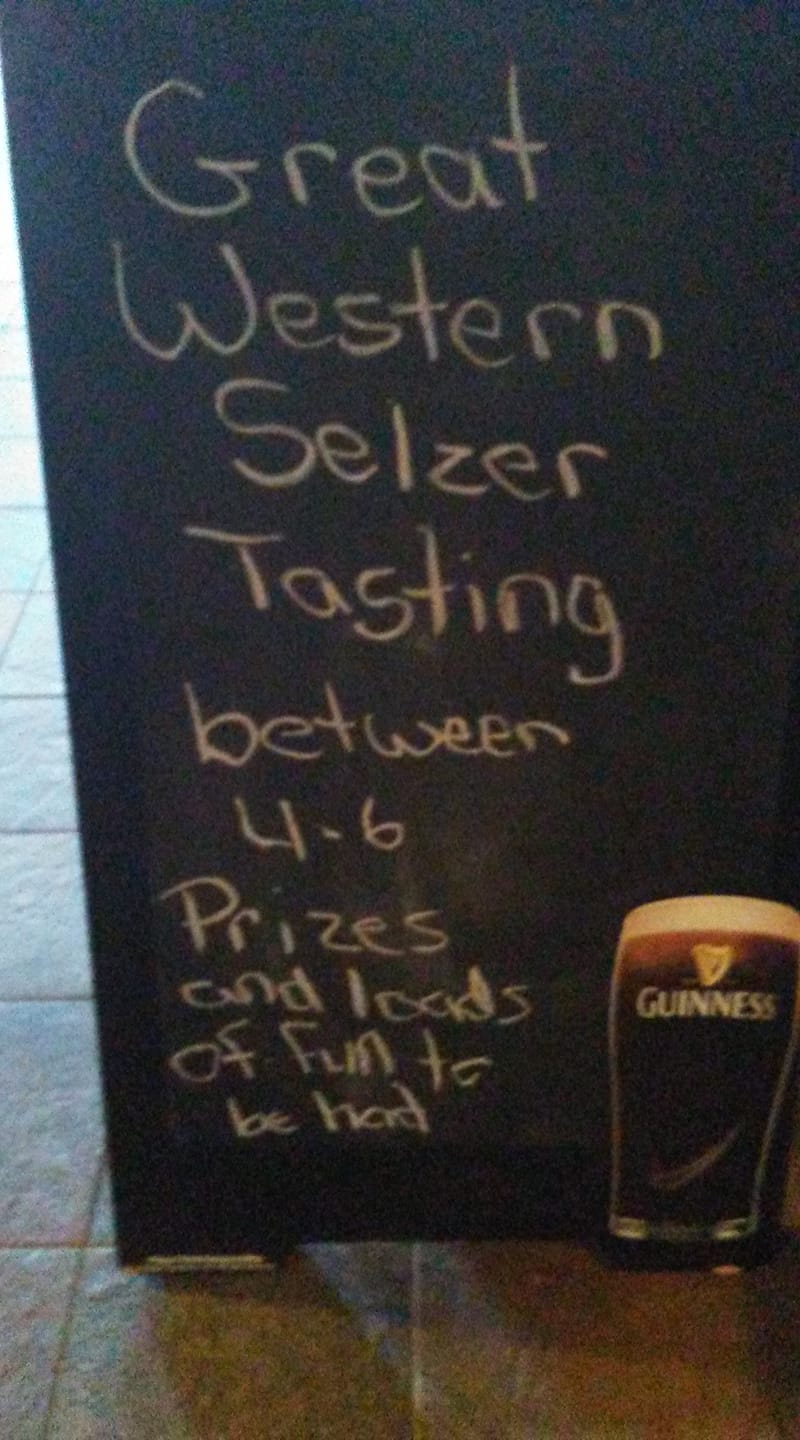 Great
Western
Selzer
Tasting
between
4-6
Prizes
and loads
of fun to
be had
GUINNESS